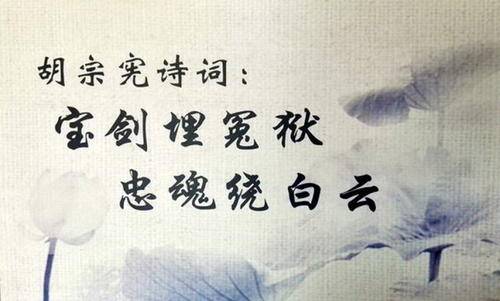 胡宗宪诗词：
宝剑埋冤狱
忠魂绕白云